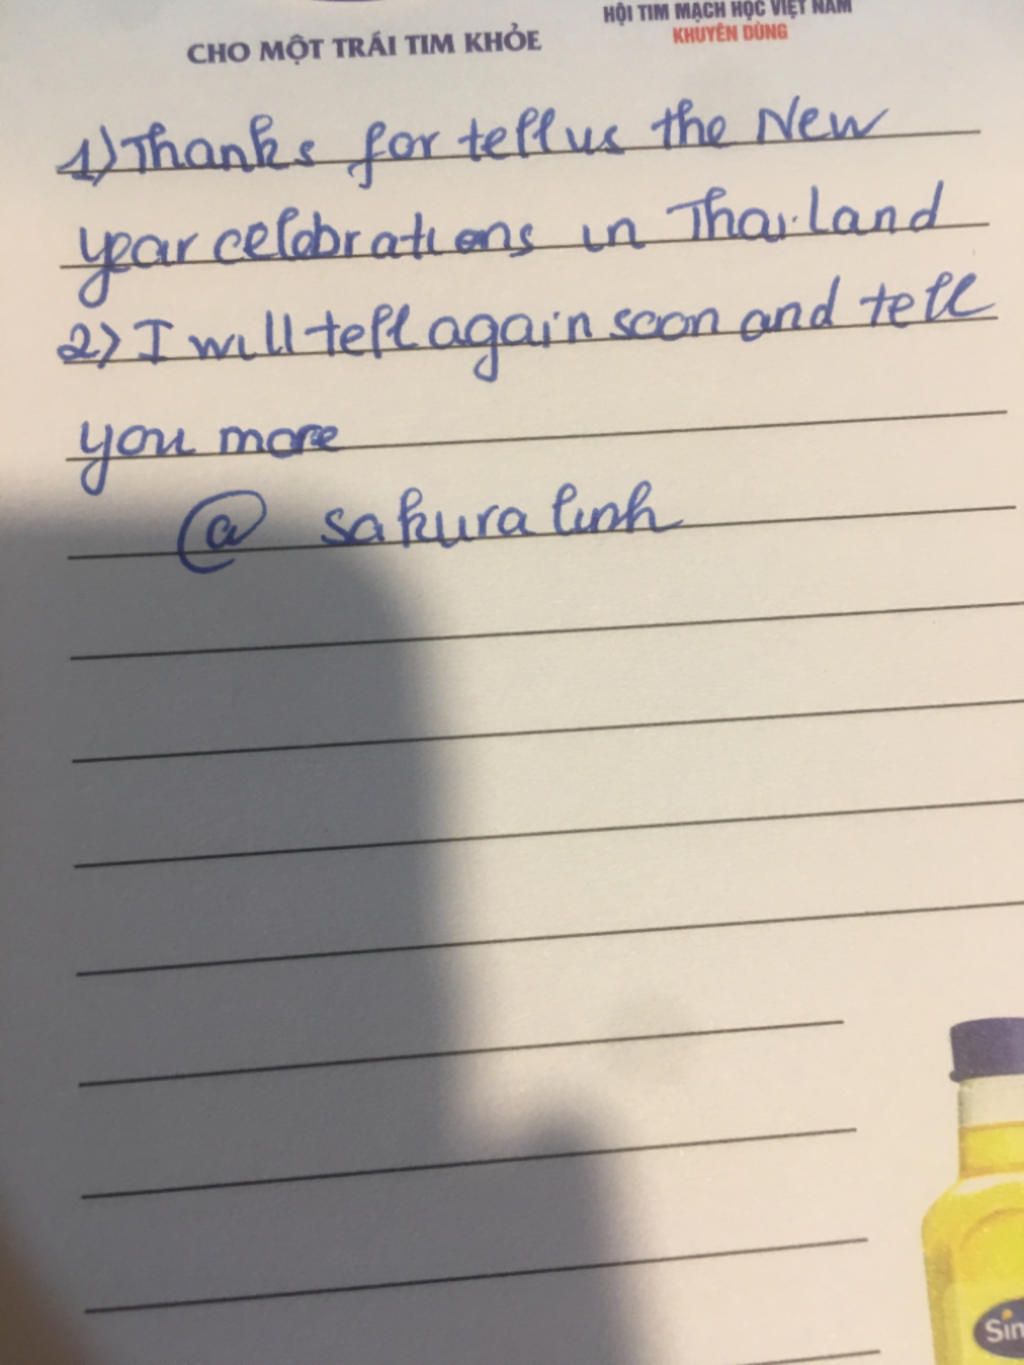 HỘI TIM MẠCH HỌC VIỆT NAM
KHUYÊN DÙNG
CHO MỘT TRÁI TIM KHỎE
1) Thanks for tell us the New
year celebrations in Thailand
2) I will tell again soon and tell
you more
@ sakura linh
Sim